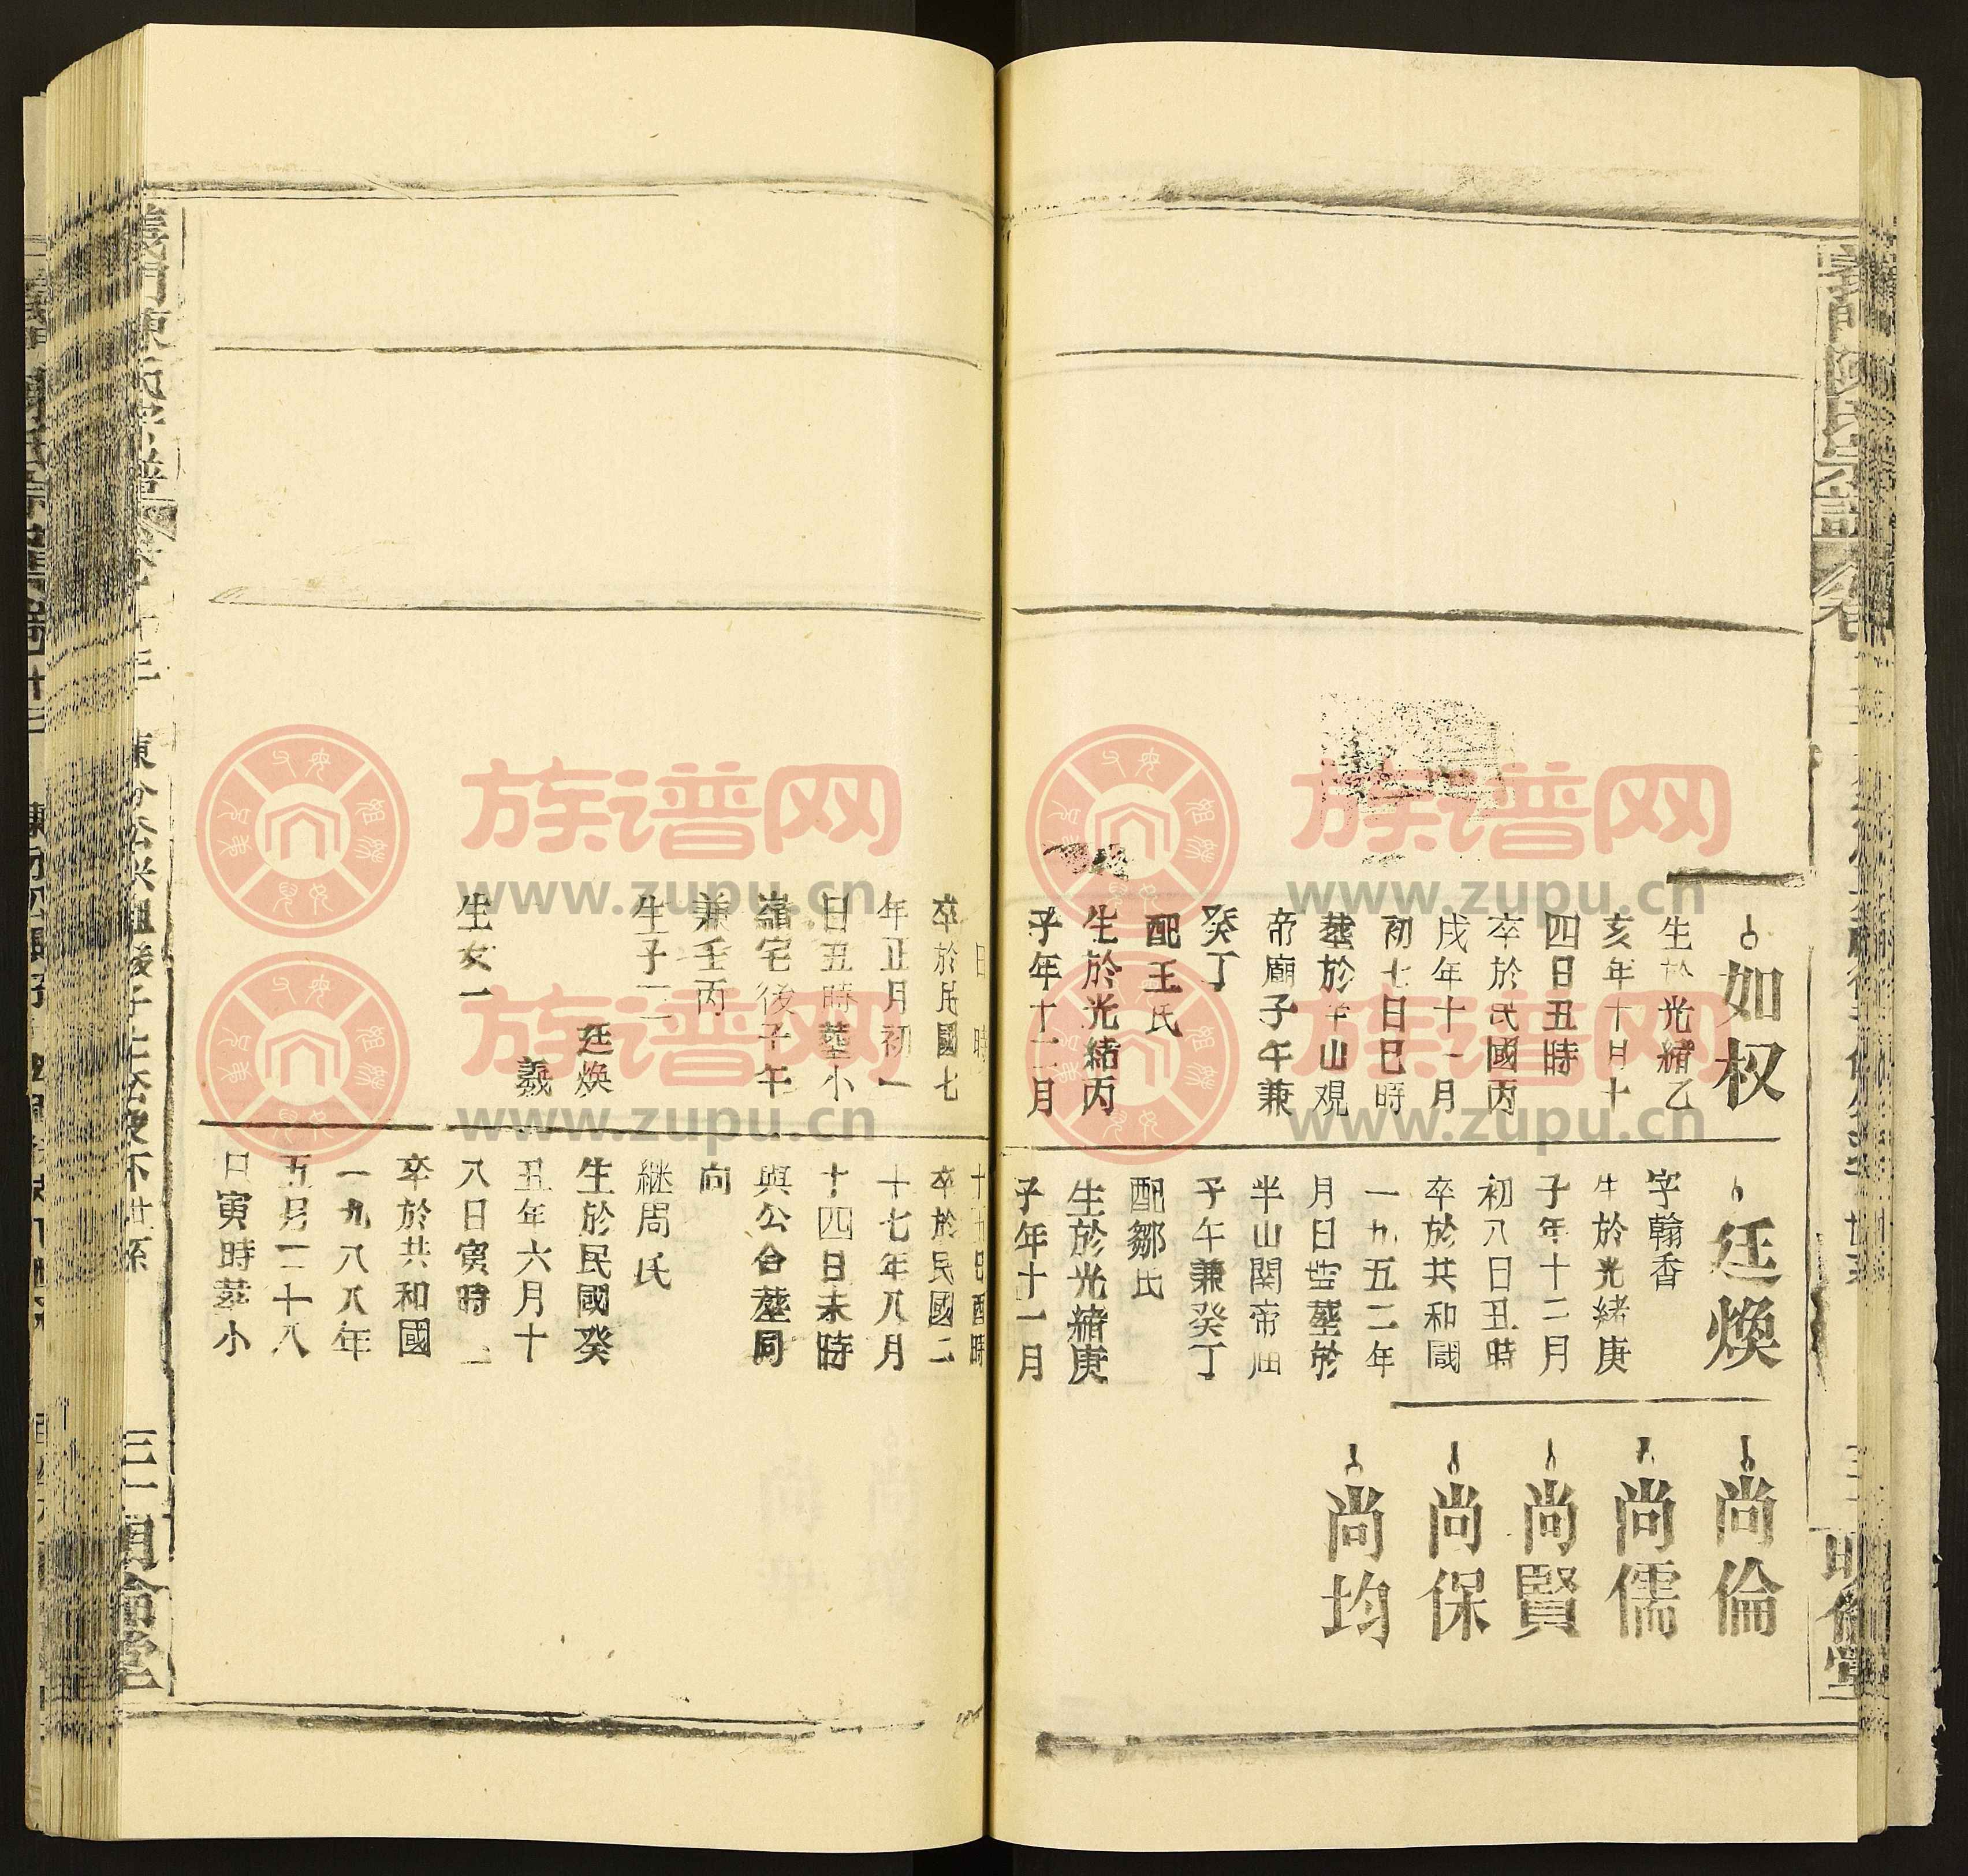 義門陳氏宗譜
如权
生於光緒乙
亥年十月十
四日丑時
卒於民國丙
戌年十一月
初七日巳時
塟於半山观
帝廟子午兼
癸丁
配王氏
生於光緒丙
子年十二月
日 時
卒於民國七
年正月初一
日丑時塟小
嶺宅後子午
兼壬丙
生子二
廷煥
義
生女一
廷煥
字翰香
生於光緒庚
子年十二月
初八日丑時
卒於共和國
一九五二年
月日 塟於
半山関帝庙
子午兼癸丁
配鄒氏
生於光緒庚
子年十一月
十五日酉時
卒於民國二
十七年八月
十四日未時
與公合塟同
向
継周氏
生於民國癸
丑年六月十
八日寅時
卒於共和國
一九八八年
五月二十八
日寅時塟小
尚倫
尚儒
尚賢
尚保
尚均
明倫堂
族谱网
www.zupu.cn
族谱网
www.zupu.cn
族谱网
www.zupu.cn
族谱网
www.zupu.cn